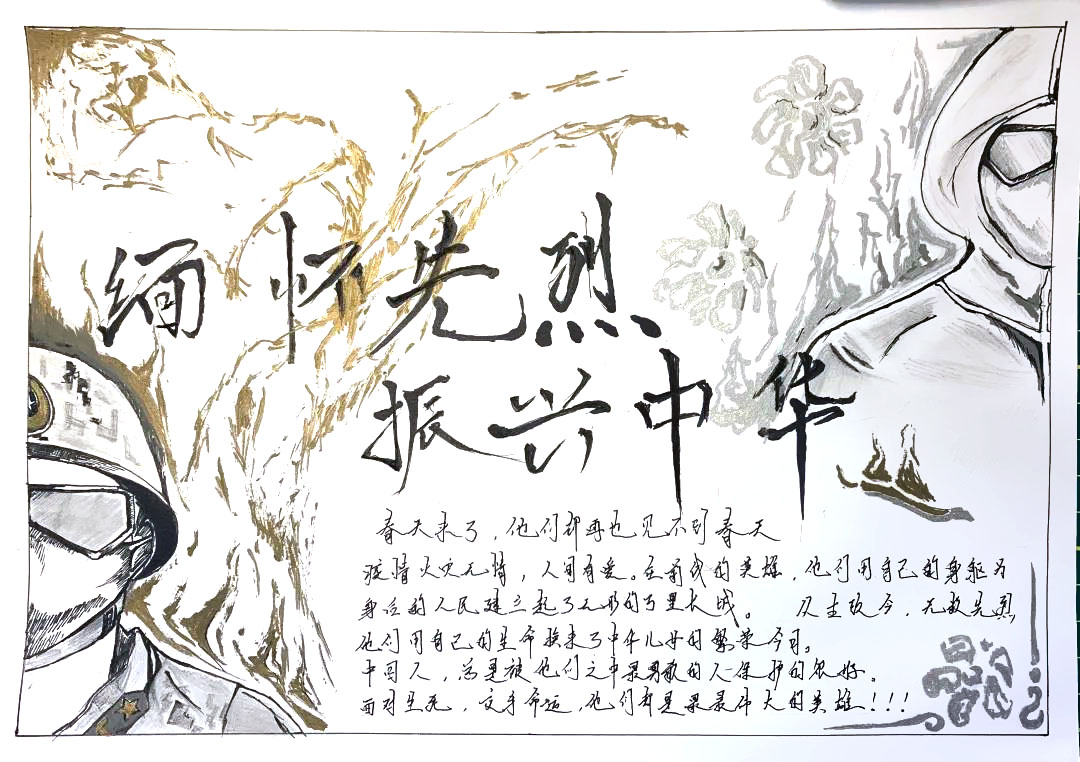 缅怀先烈
振兴中华
春天来了，他们却再也见不到春天
疫情火灾无情，人间有爱。在前线的英雄，他们用自己的身躯为
身后的人民建立起了无形的万里长城。 从古至今，无数先烈
他们用自己的生命换来了中华儿女的繁荣今日。
中国人，总是被他们之中最勇敢的人保护的很好。
面对生死，交手命运，他们都是最最伟大的英雄！！！